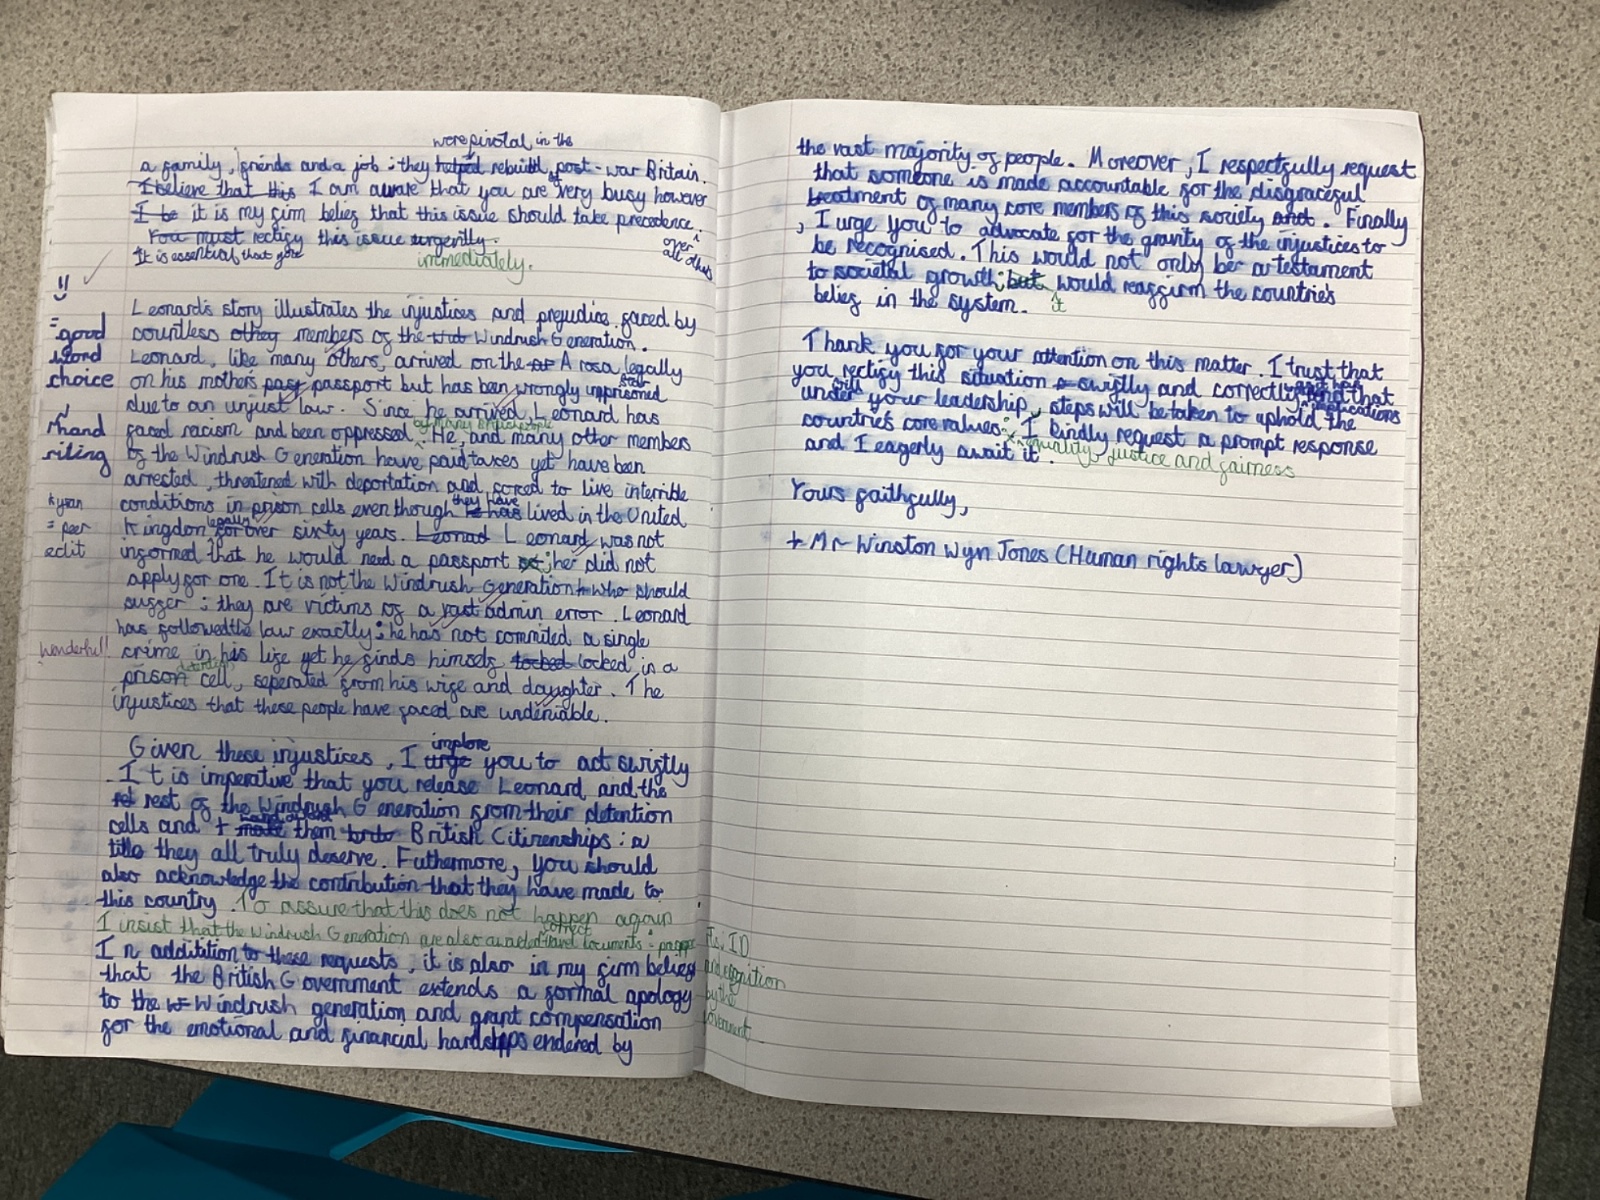 were pivotal in the
a family, friends and a job ; they helped rebuild of post-war Britain.
I believe that this I am aware that you are very busy however
I be it is my firm belief that this issue should take precedence.
over
all others
You must rectify this issue urgently.
It is essential that you
immediately.
Leonard's story illustrates the injustices and prejudice faced by
countless othey members of the Windrush Generation.
Leonard, like many others, arrived on the A rosa legally
on his mothers pasy passport but has been wrongly unprisoned
due to an unjust law. Since he arrived Leonard has
by many British people
faced racism and been oppressed. He, and many other members
of the Windrush Generation have paid taxes yet have been
arrested, threatened with deportation and forced to live in terrible
they have
conditions in prison cells even though he has lived in the United
legally
Kingdon for over sixty years. Leonad Leonard was not
informed that he would need a passport so; he did not
apply for one. It is not the Windrush Generation who should
suffer ; they are victims of a vast admin error. Leonard
has followed the law exactly ; he has not commited a single
crime in his life yet he finds himself locked in a
detention
prison cell, seperated from his wife and daughter. The
injustices that these people have faced are undeniable.
good
word
choice
hand
riting
= peer
edit
Wonderful!
implore
Given these injustices, I urge you to act swiftly
It is imperative that you release Leonard and the
rest of the Windrush Generation from their detention
cells and make them British Citizenships : a
title they all truly deserve. Futhermore, you should
also acknowledge the contribution that they have made to
this country. To assure that this does not happen again
correct
I insist that the Windrush Generation are also awarded travel documents :
ID
recognition
by the
Government
In additition to these requests, it is also in my firm belief
that the British Government extends a formal apology
to the Windrush generation and grant compensation
for the emotional and financial hardships endered by
the vast majority of people. Moreover, I respectfully request
that someone is made accountable for the disgraceful
treatment of many core members of this society and. Finally
, I urge you to advocate for the gravity of the injustices to
be recognised. This would not only be a testament
to societal growth; but would reaffirm the countries
it
belief in the system.
Thank you for your attention on this matter. I trust that
you rectify this situation swiftly and correctly and that
will
under your leadership, steps will be taken to uphold the
countries core values: I kindly request a prompt response
equality, justice and fairness
and I eagerly await it.
Yours faithfully,
Mr Winston Wyn Jones (Human rights lawyer)